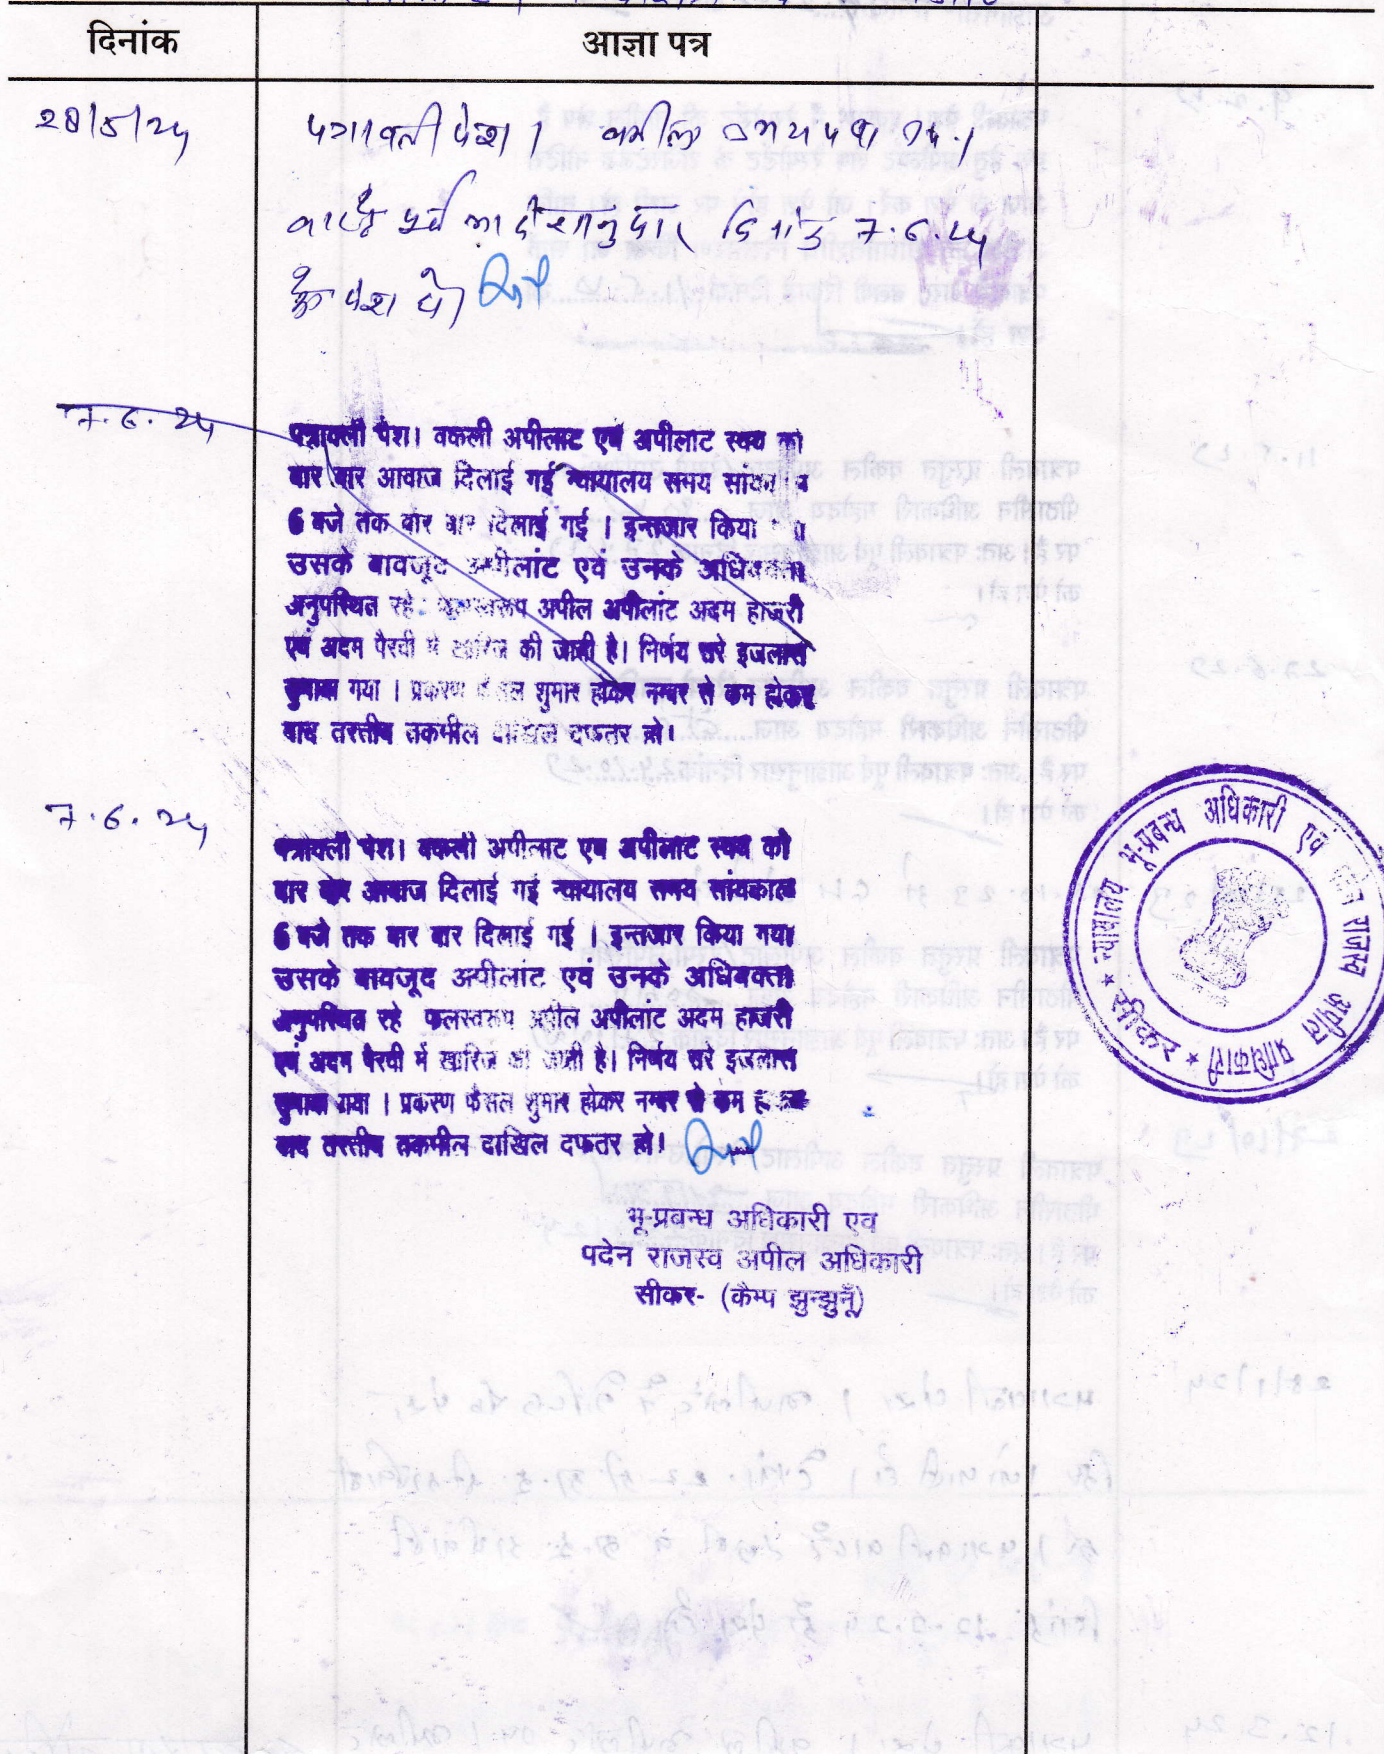 दिनांक
आज्ञा पत्र
28/5/24
पत्रावली पेश। वकील उभयपक्ष उप.।
वास्ते पूर्व आदेशानुसार दिनांक 7.6.24
को पेश हो।
7.6.24
पत्रावली पेश। वकली अपीलाट एवं अपीलाट स्वय को
बार बार आवाज दिलाई गई न्यायालय समय
6 बजे तक बार बार दिलाई गई । इन्तजार किया
उसके बावजूद अपीलांट एवं उनके अधिवक्ता
अनुपस्थित रहे अपील अपीलांट अदम हाजरी
एवं अदम पैरवी मे खारिज की जाती है। निर्णय सरे इजलास
सुनाया गया । प्रकरण फैसल शुमार होकर नम्बर से कम होकर
बाद तरतीब तकमील दाखिल दफतर हो।
7.6.24
पत्रावली पेश। वकली अपीलाट एव अपीलाट स्वय को
बार बार आवाज दिलाई गई न्यायालय समय सांयकाल
6 बजे तक बार बार दिलाई गई । इन्तजार किया गया
उसके बावजूद अपीलांट एवं उनके अधिवक्ता
अनुपस्थित रहे फलस्वरूप अपील अपीलांट अदम हाजरी
एवं अदम पैरवी मे खारिज की जाती है। निर्णय सरे इजलास
सुनाया गया । प्रकरण फैसल शुमार होकर नम्बर से कम
बाद तरतीब तकमील दाखिल दफतर हो।
भू-प्रबन्ध अधिकारी एव
पदेन राजस्व अपील अधिकारी
सीकर- (कैम्प झुन्झुनूँ)
न्यायालय भू-प्रबन्ध अधिकारी एवं पदेन राजस्व अपील प्राधिकारी
* सीकर *